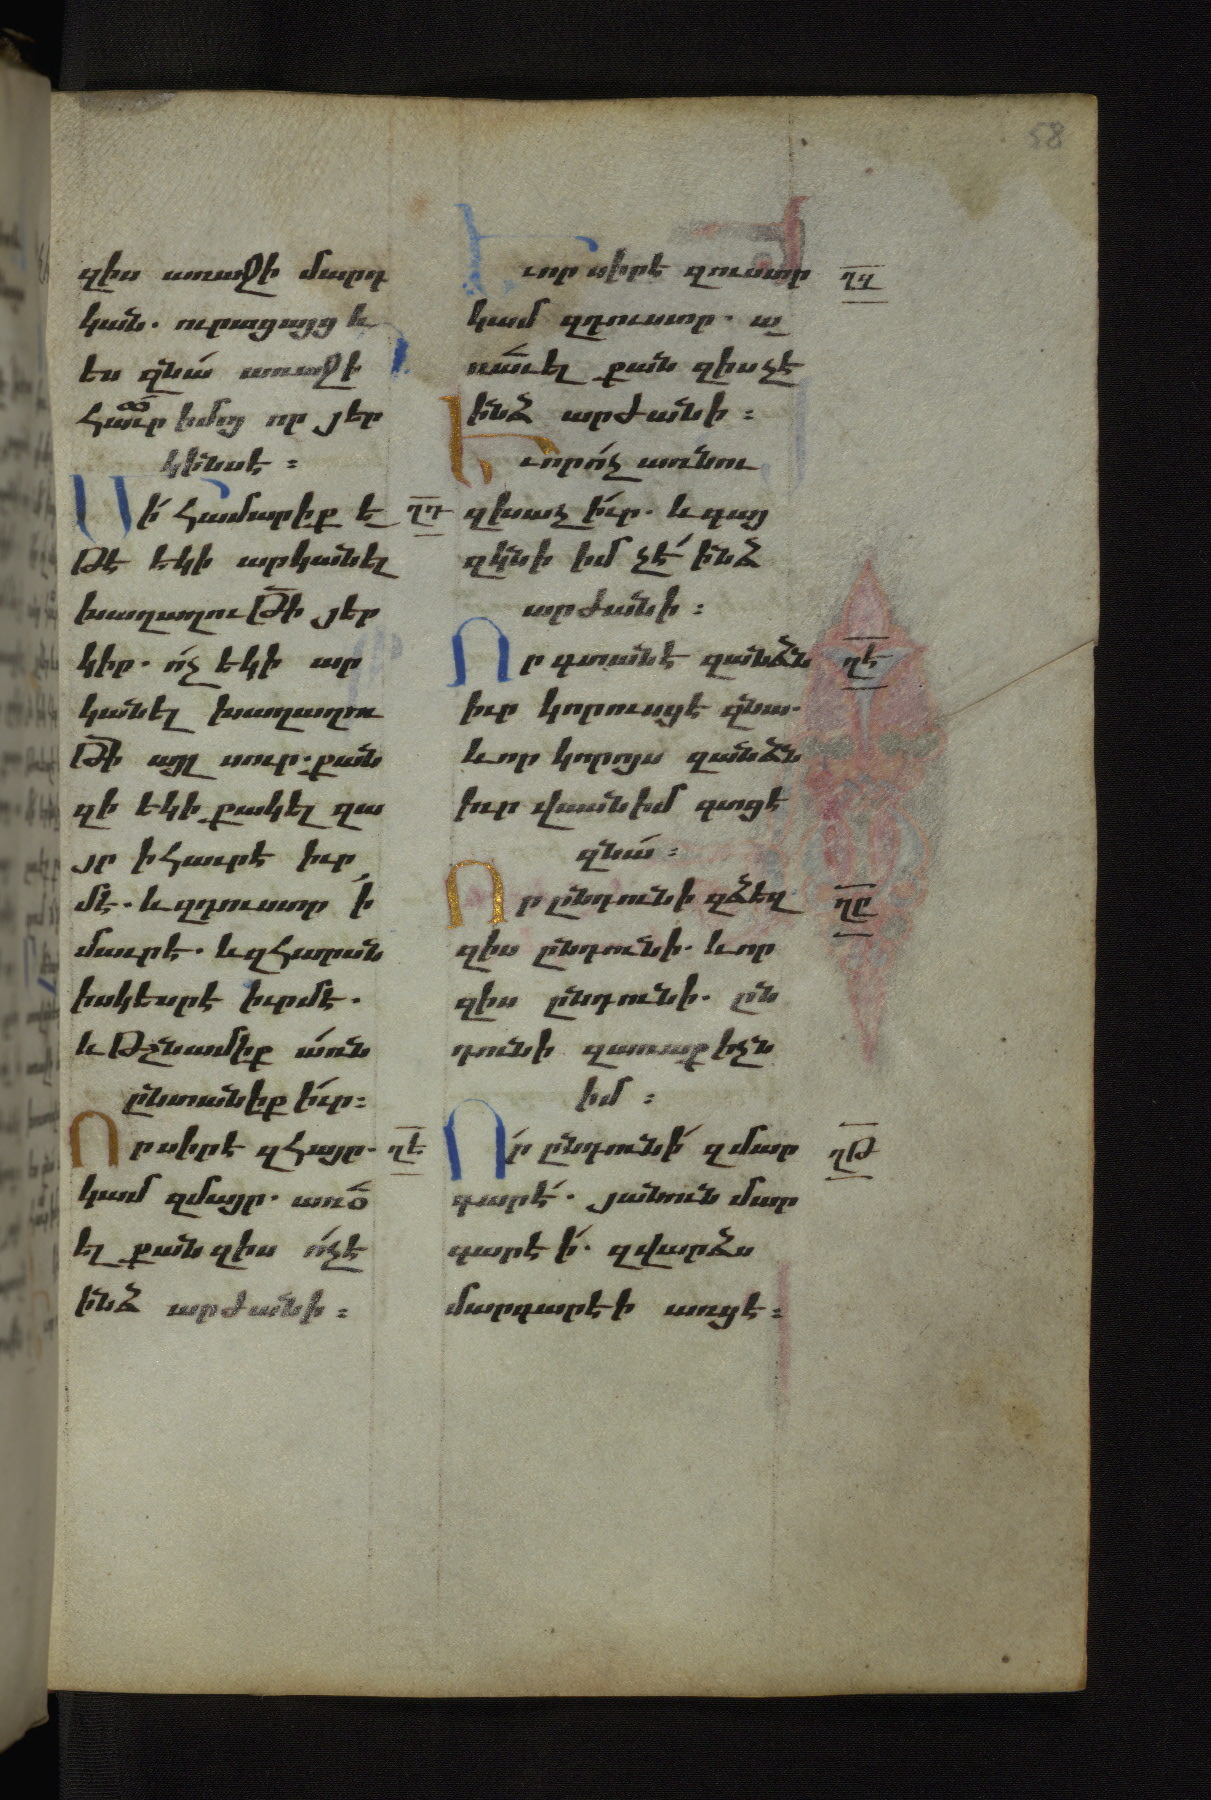 58
զիս առաջի մարդ
կան. ուրացայց և
ես զնա՛ առաջի
հաւր իմոյ որ յեր
կինսէ ։
Մի՛ համարիք ե ՂԴ
թէ եկի արկանել
խաղաղութի յեր
կիր. ո՛չ եկի ար
կանել խաղաղու
թի այլ սուր. քան
զի եկի քակել զա
յր ի հաւրէ իւր
մէ. և զդուստր ի՛
մաւրէ. և զհարսն
իսկեսրէ իւրմէ.
և թշնամիք առն
ընտանիք իւր։
Որ սիրէ զհայր. ՂԵ
կամ զմայր. առօ
ել քան զիս ո՛չ է
ինձ արժանի ։
Եւ որ սիրէ զուստր ՂԶ
կամ զդուստր. ա
ռաւել քան զիս չէ
ինձ արժանի ։
Եւ որ ո՛չ առնու
զխաչ իւր. և գայ
զկնի իմ չէ՛ ինձ
արժանի ։
Որ գտանէ զանձն ՂԷ
իւր կորուսցէ զնա.
և որ կորոյս զանձն
իւր վասն իմ գտցէ
զնա՛ ։
Որ ընդունի զձեզ ՂԸ
զիս ընդունի. և որ
զիս ընդունի. ըն
դունի զառաքիչն
իմ ։
Ո՛ր ընդունի՛ զմար ՂԹ
գարէ՛. յանուն մար
գարէի՛. զվարձս
մարգարէի առցէ։